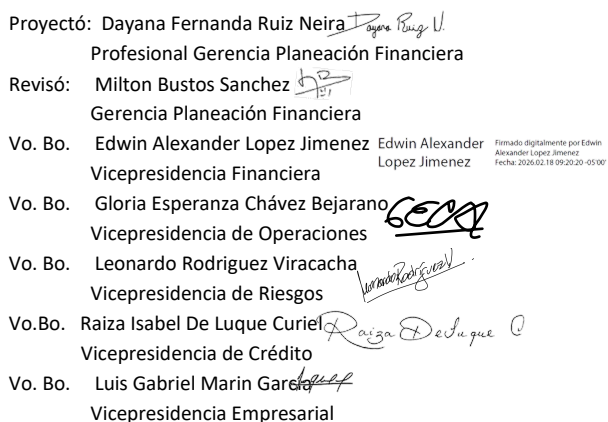 Proyectó: Dayana Fernanda Ruiz Neira Dayana Ruiz N.
Profesional Gerencia Planeación Financiera
Revisó: Milton Bustos Sanchez
Gerencia Planeación Financiera
Vo. Bo. Edwin Alexander Lopez Jimenez Edwin Alexander Lopez Jimenez
Firmado digitalmente por Edwin
Alexander Lopez Jimenez
Fecha: 2026.02.18 09:20:20 -05'00'
Vicepresidencia Financiera
Vo. Bo. Gloria Esperanza Chávez Bejarano
Vicepresidencia de Operaciones
Vo. Bo. Leonardo Rodriguez Viracacha Leonardo Rodríguez V.
Vicepresidencia de Riesgos
Vo.Bo. Raiza Isabel De Luque Curiel Raiza De Luque C
Vicepresidencia de Crédito
Vo. Bo. Luis Gabriel Marin Garcia
Vicepresidencia Empresarial